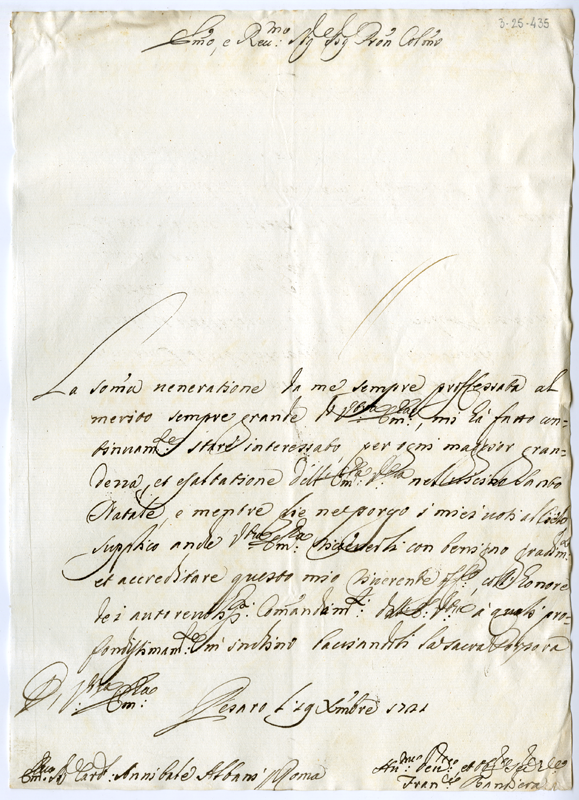 3-25-435
Emo, e Reu:mo Sig Sig Pron Colmo
La soma ueneratione da me sempre proffessata al
merito sempre grande di Vostra Em:, mi hà fatto con=
tinuam:te stare interessato per ogni maggior gran=
dezza, et esaltatione dell' Em: Vra nel Santo
Natale, e mentre che ne porgo i miei uoti al Cielo
supplico anche Vra Em: riceuerli con benigno gradim:to
et accreditare questo mio riuerente coll' honore
de i autoreuoliss: Comandam:ti dell' E: Vra a quali pro=
fondissimam:te m' inchino bacciandoli la sacra Porpora
Di V:ra Em:
Pesaro li 19 Xmbre 1721
Em: Sr Card: Annibale Albani Roma
Hu:mo Deu: et
Fran:co Bandiera